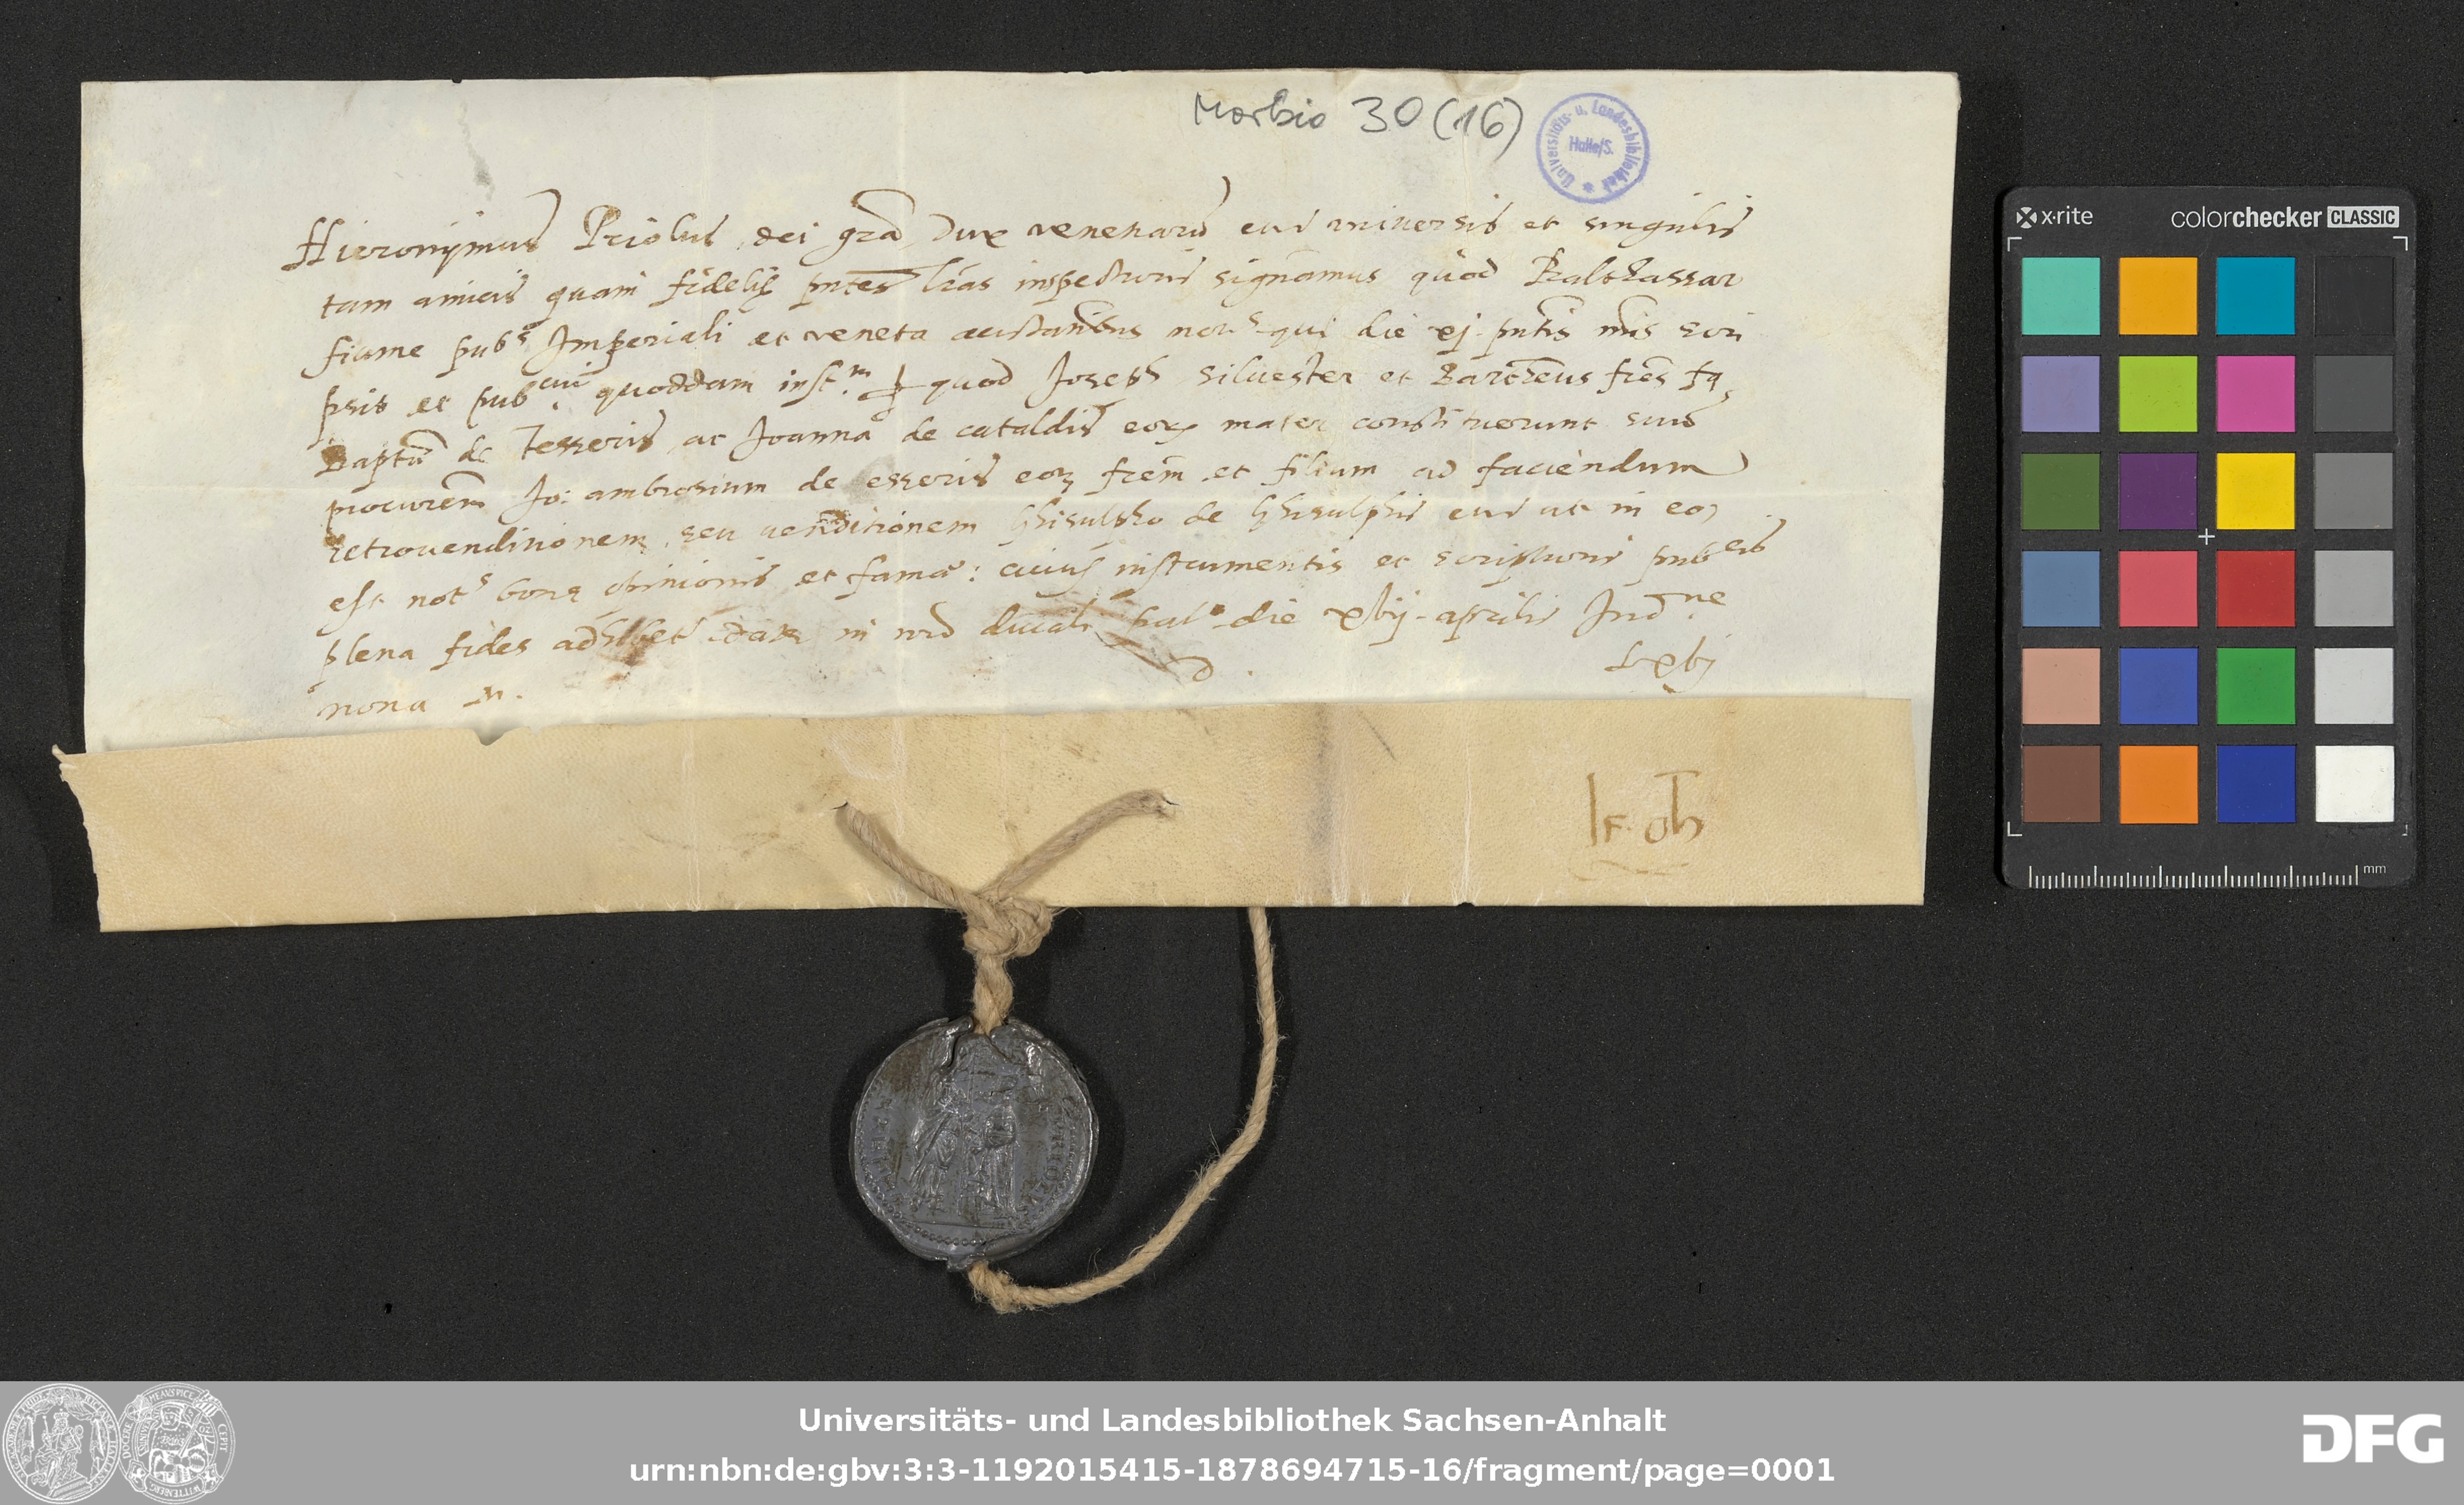 Morbio 30 (16)
Universitäts- u. Landesbibliothek
Halle/S.
Hieronymus Priolus dei gra Dux venetiarũ universis et singulis
tam amicis quam fidelib pntes lras inspecturis significamus quod Balthassar
fiume pubs Imperiali et veneta not.s qui die xj pntis mis scri
psit et quoddam inst.m quod Joseph Silvester et fres fq
Bapta de Tesseris ac Joanna de cataldis eorz mater constituerunt suũ
procurem Jo: ambrosium de esseris eorz frem et filium ad faciendum
retrovenditionem seu venditionem Ghisulpho de Ghisulphis ut in eo
est nots bonę opinionis et famæ: cuius instrumentis et scripturis pubcis
plena fides adhibet data in nrõ ducali pal.o die xvij aprilis Ind.ne
nona
D. Lxvj
x·rite
colorchecker CLASSIC
mm
Universitäts- und Landesbibliothek Sachsen-Anhalt
urn:nbn:de:gbv:3:3-1192015415-1878694715-16/fragment/page=0001
DFG